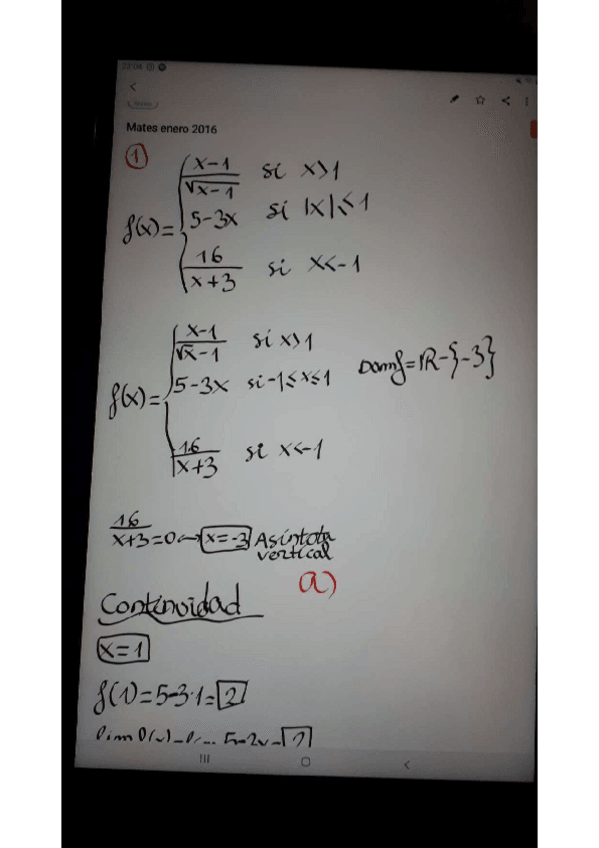 23:04
Mates enero 2016
①
f(x)= { x-1/√x-1 si x>1
5-3x si |x|≤1
16/x+3 si x<-1
f(x)= { x-1/√x-1 si x>1
5-3x si -1≤x≤1
16/x+3 si x<-1
Domf=ℝ-{-3}
16/x+3=0→x=-3 Asíntota
vertical
a)
Continuidad
x=1
f(1)=5-3·1=2